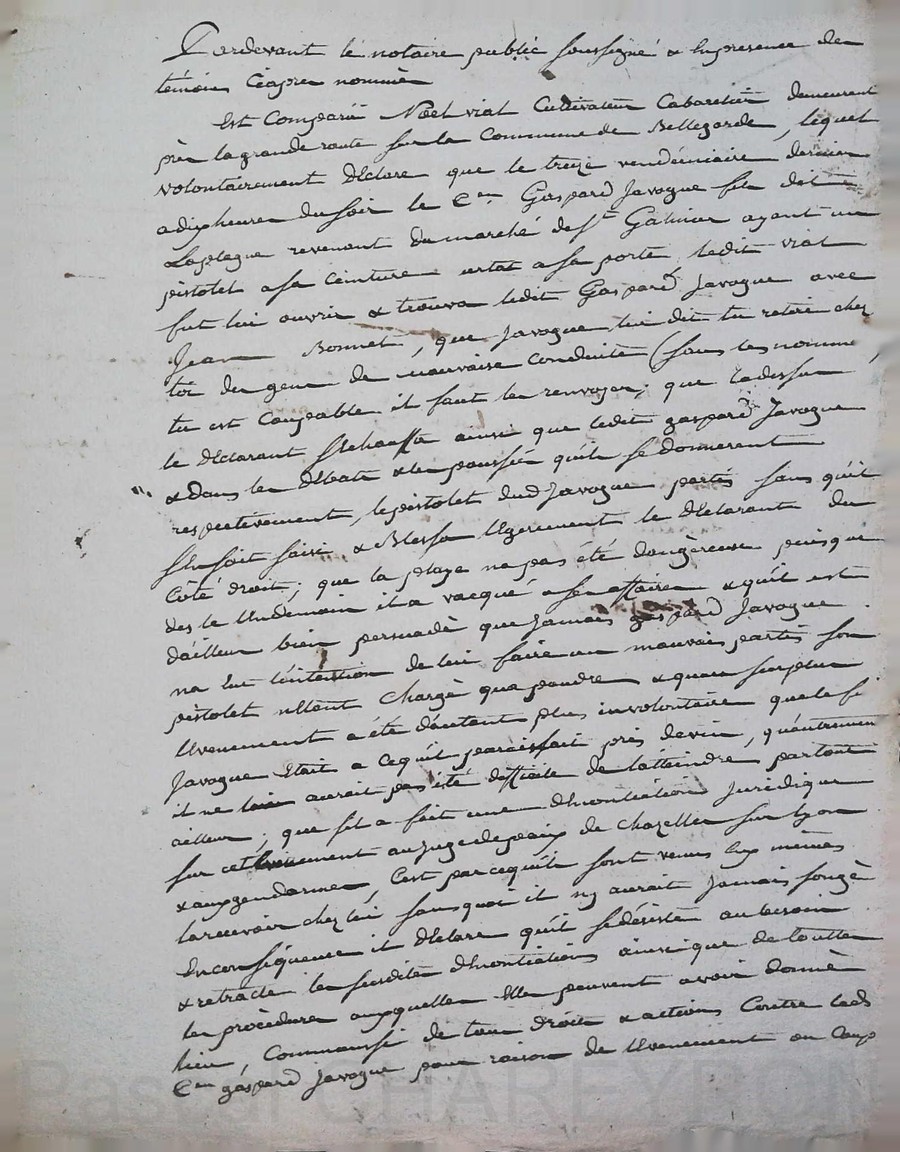 Pardevant le notaire public soussigné & En presence des
témoins Ciapres nommès
Est Comparû Noël viat Cultivateur Cabaretier demeurant
près la grande route sur la Commune de Bellegarde, lequel
volontairement Déclare que le treize vendémiaire dernier
a dix heures du soir le Cen Gaspard Javogue fils dit
Laplagne revenant du marché de St Galmier ayant un
pistolet a sa Ceinture a sa porte ledit viat
fut lui ouvrir & trouva ledit Gaspard Javogue avec
Jean Bonnet, que Javogue lui dit tu retire chez
toi des gens de mauvaise Conduite (sans les nommer,
tu est Coupable il faut les renvoyer; que la dessus
le déclarant S'Echauffa ainsi que ledit gaspard Javogue
& dans les débats & les poussées qu'ils se donnerent
respectivement, le pistolet dud Javogue partit sans qu'il
s'En soit saisi & Blessa légerement le déclarant du
Côté droit; que la playe na pas été dangereuse puisque
des le lendemain il a vacqué a ses affaires & qu'il est
d'ailleurs bien persuadé que jamais gaspard Javogue
na Eut l'intention de lui faire un mauvais partis son
pistolet n'Etant Chargé qua poudre & quau surplus
l'Evenement a été d'autant plus involontaire que le fi
Javogue Etait a Cequ'il paraissait pris de vin, qu'autrement
il ne lui aurait pas été difficile de l'atteindre partout
ailleurs; que s'il a fait une dénontiation Juridique
sur cet Evenement au juge de paix de Chazelles sur Lyon
& aux gendarmes, C'est parcequ'ils sont venus Eux mêmes
la recevoir chez lui sans quoi il n'y aurait jamais songé
En conséquence il déclare qu'il se désiste au besoin
& retracte les susdites dénontiations ainsi que de touttes
les procédures auxquelles Elles peuvent avoir donné
lieu, Comme aussi de tous droits & actions Contre led
Cen gaspard Javogue pour raison de l'Evenement ou Coup
Pascal CHAREYRON